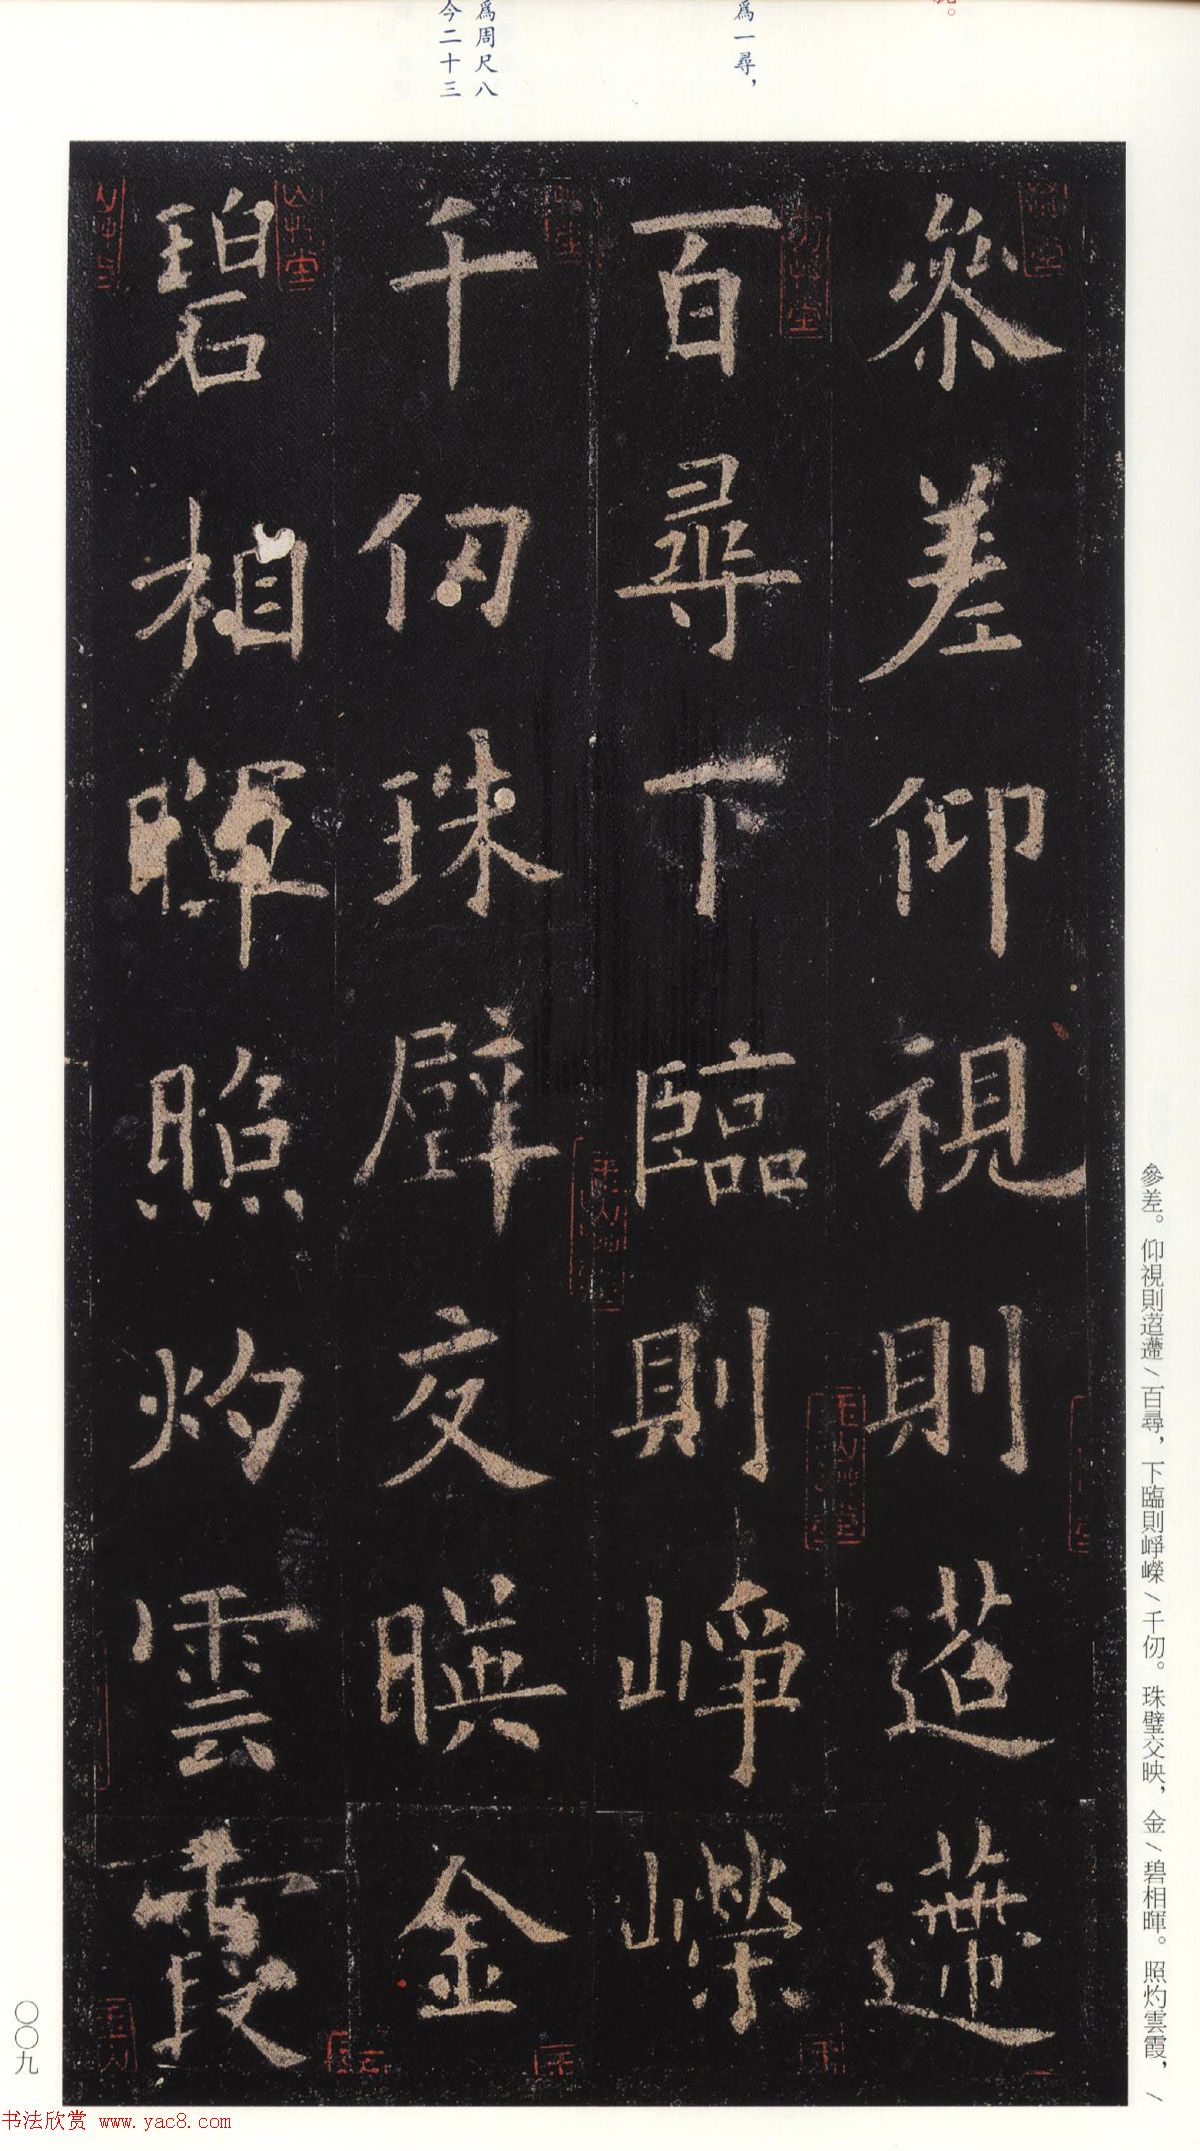 為一尋，
為周尺八
今二十三
參差仰視則迢遰
百尋下臨則崢嶸
千仞珠璧交暎金
碧相暉照灼雲霞
參差。仰視則迢遰／百尋，下臨則崢嶸／千仞。珠璧交映，金／碧相暉。照灼雲霞，／
〇〇九
书法欣赏 www.yac8.com